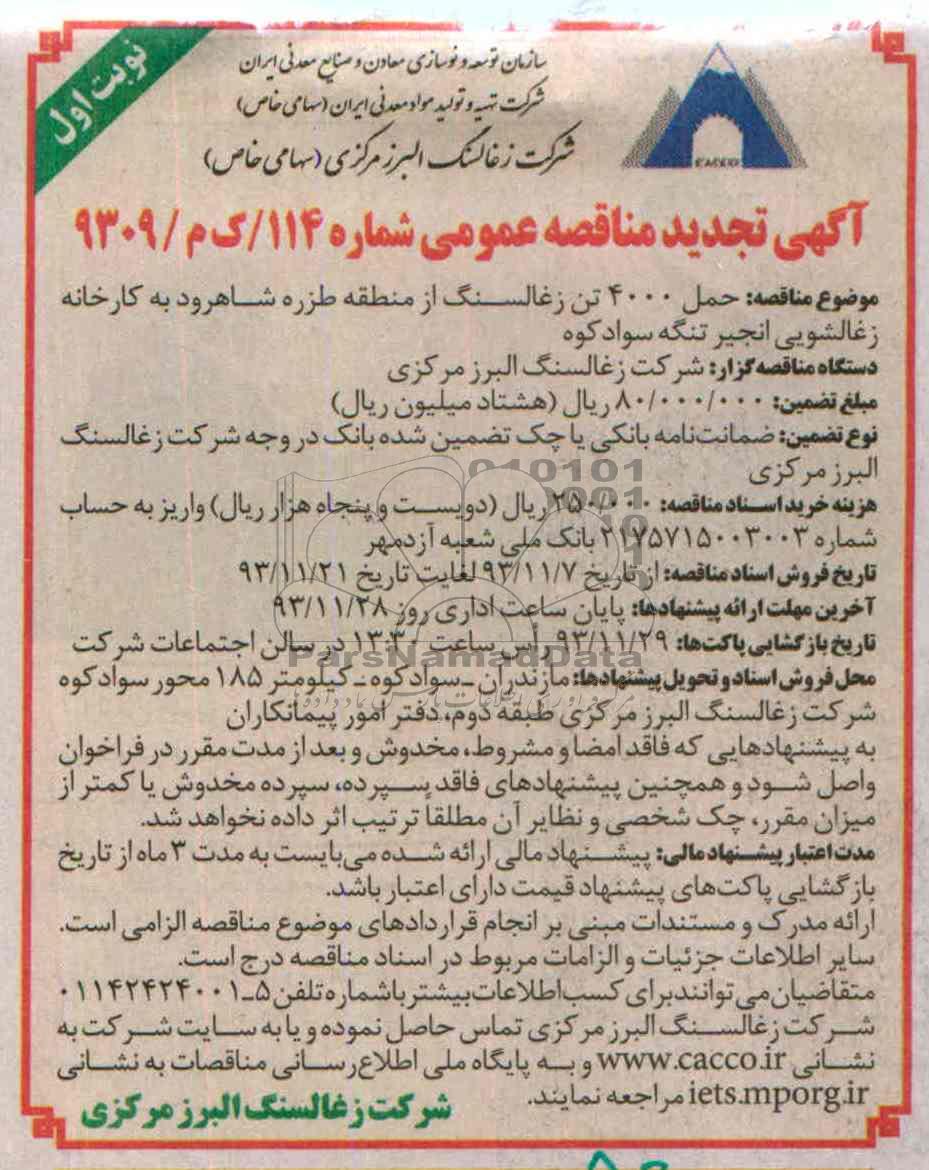 نوبت اول
سازمان توسعه و نوسازی معادن و صنایع معدنی ایران
شرکت تهیه و تولید مواد معدنی ایران (سهامی خاص)
شرکت زغالسنگ البرز مرکزی (سهامی خاص)
آگهی تجدید مناقصه عمومی شماره ۱۱۴/ک م/۹۳۰۹
موضوع مناقصه: حمل ۴۰۰۰ تن زغالسنگ از منطقه طزره شاهرود به کارخانه
زغالشویی انجیر تنگه سوادکوه
دستگاه مناقصه‌گزار: شرکت زغالسنگ البرز مرکزی
مبلغ تضمین: ۸۰/۰۰۰/۰۰۰ ریال (هشتاد میلیون ریال)
نوع تضمین: ضمانت‌نامه بانکی یا چک تضمین شده بانک در وجه شرکت زغالسنگ
البرز مرکزی
هزینه خرید اسناد مناقصه: ۲۵۰/۰۰۰ ریال (دویست و پنجاه هزار ریال) واریز به حساب
شماره ۲۱۷۵۷۱۵۰۰۳۰۰۳ بانک ملی شعبه آزدمهر
تاریخ فروش اسناد مناقصه: از تاریخ ۹۳/۱۱/۷ لغایت تاریخ ۹۳/۱۱/۲۱
آخرین مهلت ارائه پیشنهادها: پایان ساعت اداری روز ۹۳/۱۱/۲۸
تاریخ بازگشایی پاکت‌ها: ۹۳/۱۱/۲۹ رأس ساعت ۱۳:۳۰ در سالن اجتماعات شرکت
محل فروش اسناد و تحویل پیشنهادها: مازندران ـ سوادکوه ـ کیلومتر ۱۸۵ محور سوادکوه
شرکت زغالسنگ البرز مرکزی طبقه دوم، دفتر امور پیمانکاران
به پیشنهادهایی که فاقد امضا و مشروط، مخدوش و بعد از مدت مقرر در فراخوان
واصل شود و همچنین پیشنهادهای فاقد سپرده، سپرده مخدوش یا کمتر از
میزان مقرر، چک شخصی و نظایر آن مطلقاً ترتیب اثر داده نخواهد شد.
مدت اعتبار پیشنهاد مالی: پیشنهاد مالی ارائه شده می‌بایست به مدت ۳ ماه از تاریخ
بازگشایی پاکت‌های پیشنهاد قیمت دارای اعتبار باشد.
ارائه مدرک و مستندات مبنی بر انجام قراردادهای موضوع مناقصه الزامی است.
سایر اطلاعات جزئیات و الزامات مربوط در اسناد مناقصه درج است.
متقاضیان می‌توانند برای کسب اطلاعات بیشتر با شماره تلفن ۵ـ۰۱۱۴۲۴۲۴۰۰۱
شرکت زغالسنگ البرز مرکزی تماس حاصل نموده و یا به سایت شرکت به
نشانی www.cacco.ir و به پایگاه ملی اطلاع‌رسانی مناقصات به نشانی
iets.mporg.ir مراجعه نمایند.
شرکت زغالسنگ البرز مرکزی
ParsNamadData